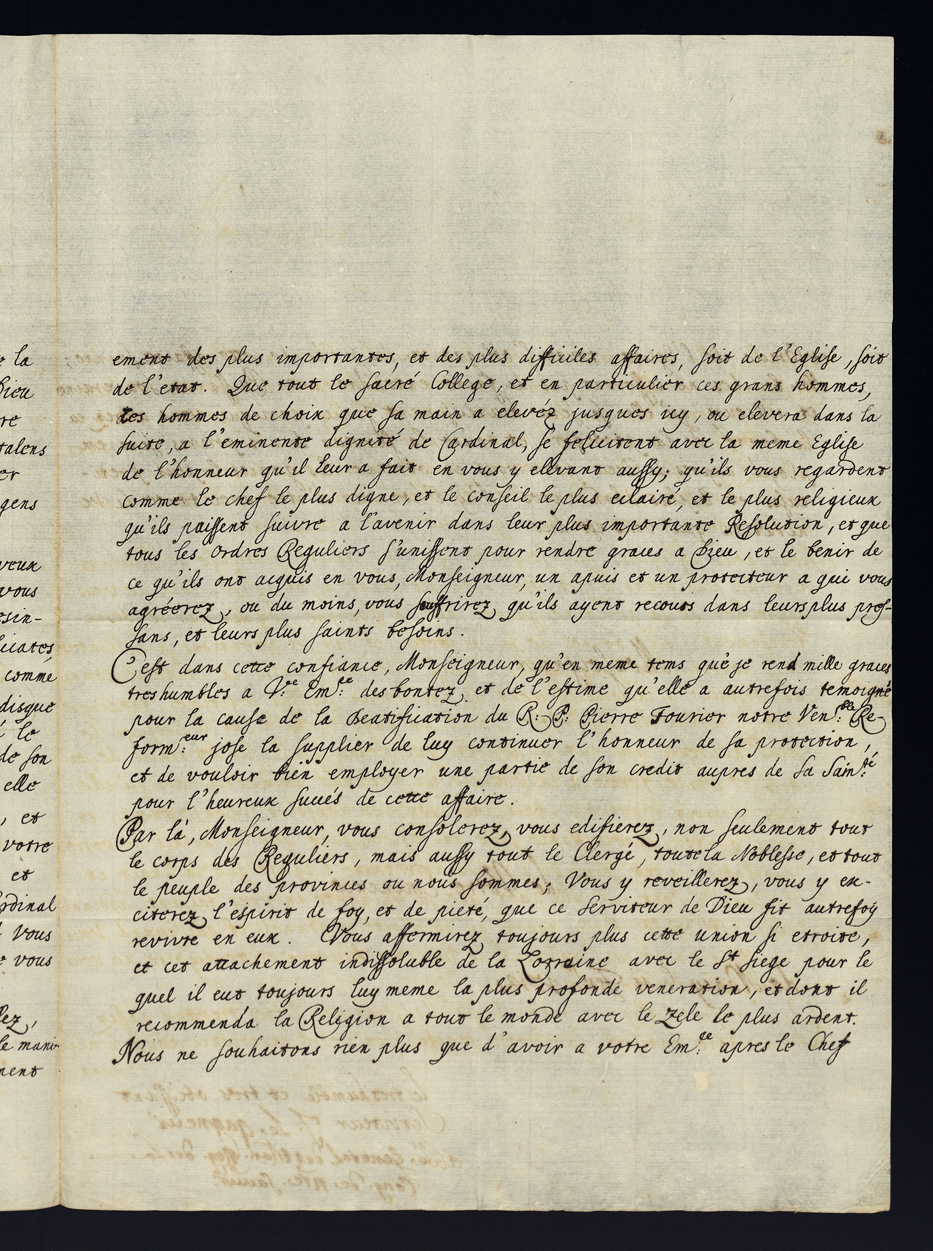 e la
Dieu
re
talens
er
gens
veux
vous
esin-
licates
comme
disque
é le
de son
elle
, et
votre
et
ardinal
t vous
e vous
lez,
le mani-
ment
ement des plus importantes, et des plus difficiles affaires, soit de l'Eglise, soit
de l'etat. Que tout le sacré College, et en particulier ces grans hommes,
les hommes de choix que sa main a elevéz jusques icy, ou elevera dans la
suite, a l'eminente dignité de Cardinal, se felicitent avec la meme Eglise
de l'honneur qu'il leur a fait en vous y elevant aussy; qu'ils vous regardent
comme le chef le plus digne, et le conseil le plus eclairé, et le plus religieux
qu'ils puissent suivre a l'avenir dans leur plus importante Resolution, et que
tous les ordres Reguliers s'unissent pour rendre graces a Dieu, et le benir de
ce qu'ils ont acquis en vous, Monseigneur, un apuis et un protecteur a qui vous
agréerez, ou du moins, vous souffrirez qu'ils ayent recours dans leurs plus pres-
sans, et leurs plus saints besoins.
C'est dans cette confiance, Monseigneur, qu'en meme tems que je rend mille graces
tres humbles a V.re Em.ce des bontez, et de l'estime qu'elle a autrefois temoigné
pour la cause de la Beatification du R. P. Pierre Fourier notre Ven.ble Re-
form.eur j'ose la supplier de luy continuer l'honneur de sa protection,
et de vouloir bien employer une partie de son credit aupres de sa Sain.té
pour l'heureux succés de cette affaire.
Par là, Monseigneur, vous consolerez, vous edifierez, non seulement tout
le corps des Reguliers, mais aussy tout le Clergé, toute la Noblesse, et tout
le peuple des provinces ou nous sommes; Vous y reveillerez, vous y ex-
citerez l'espirit de foy, et de pieté, que ce serviteur de Dieu fit autrefoy
revivre en eux. Vous affermirez toujours plus cette union si etroite,
et cet attachement indissoluble de la Lorraine avec le St Siege pour le
quel il eut toujours luy meme la plus profonde veneration, et dont il
recommenda la Religion a tout le monde avec le zele le plus ardent.
Nous ne souhaitons rien plus que d'avoir a votre Em.ce apres le Chef